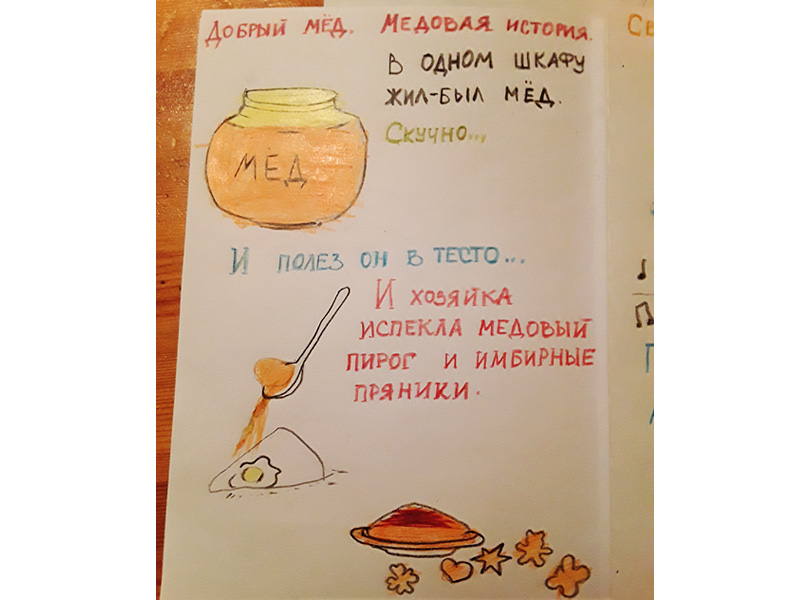 Добрый мёд. Медовая история.
В одном шкафу
жил-был мёд.
Скучно...
МЁД
И полез он в тесто...
И хозяйка
испекла медовый
пирог и имбирные
пряники.
Св